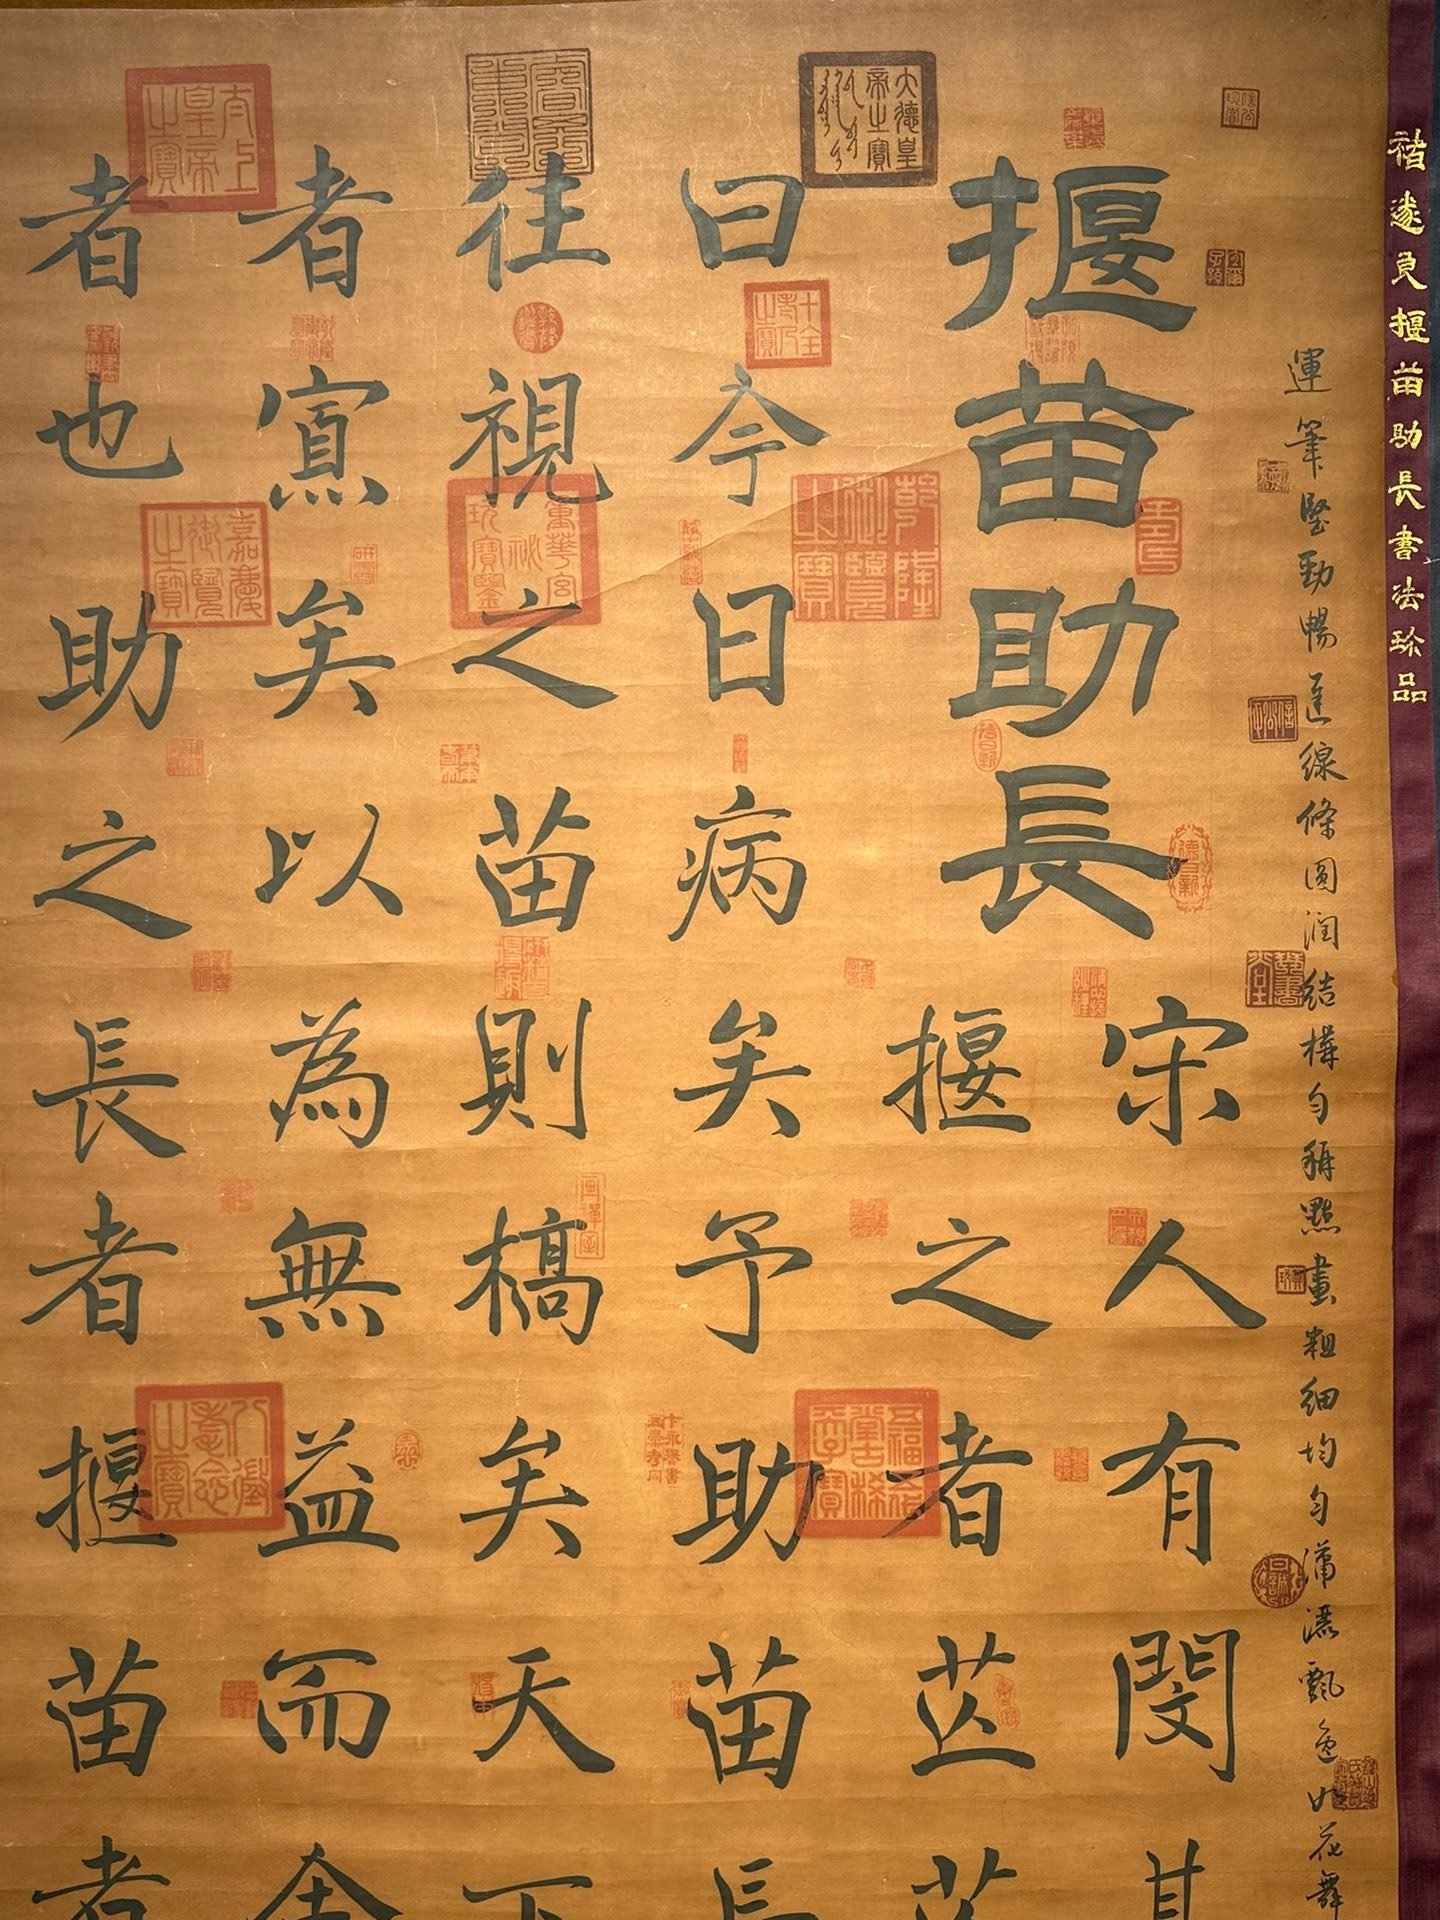 褚遂良揠苗助長書法珍品
運筆堅勁暢達線條圓潤結構勻稱點畫粗細均勻瀟灑飄逸如花舞
揠苗助長
宋人有閔其
揠之者芒芒
曰今日病矣予助苗長
往視之苗則槁矣天下
者寡矣以為無益而舍
者也助之長者揠苗者
大德皇帝之寶
太上皇帝之寶
十全老人之寶
乾隆御覽之寶
嘉慶御覽之寶
八徵耄念之寶
德日新